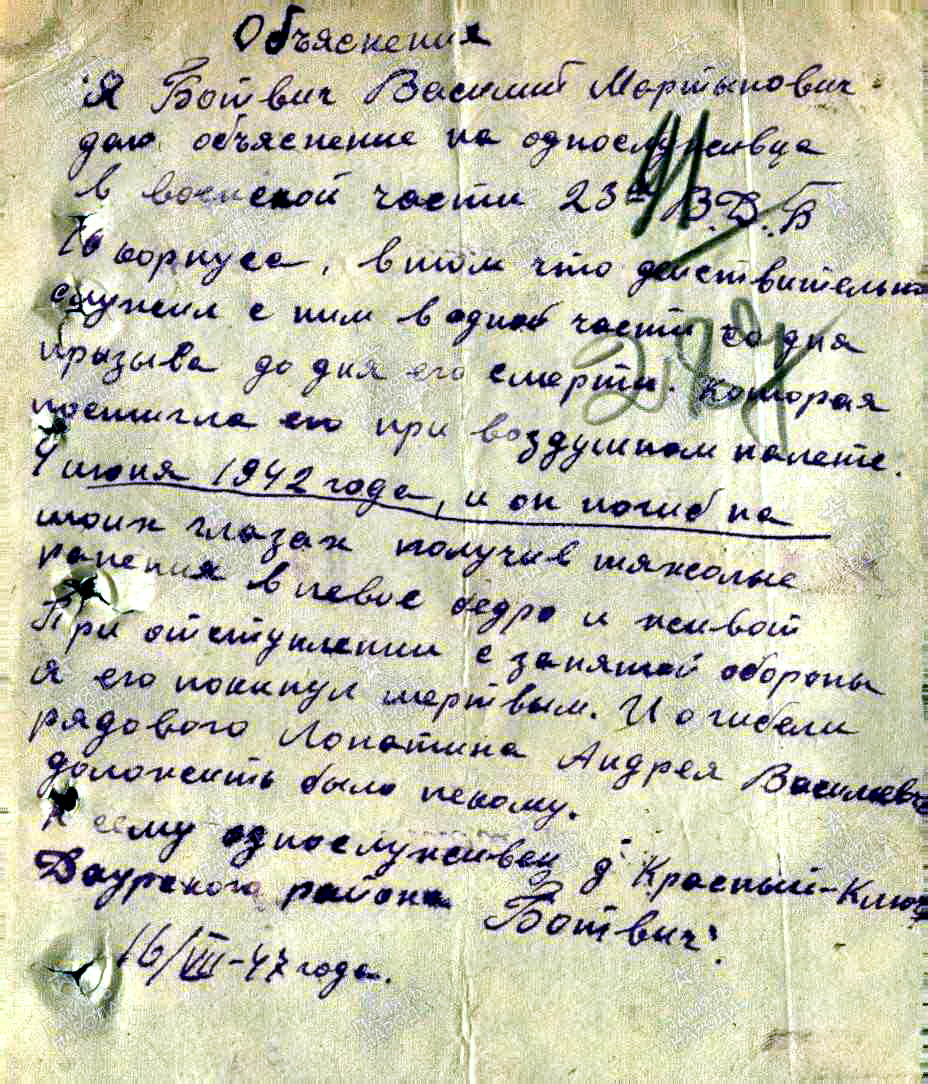 Объяснения
Я Ботвич Василий Мартынович
даю объяснение на однослуживца
в воинской части 23й В.Д.Б
10 корпуса, в том что действительно
служил с ним в одной части со дня
призыва до дня его смерти. которая
постигла его при воздушном налете.
июня 1942 года, и он погиб на
моих глазах получив тяжолые
ранения в левое бедро и живот
При отступлении с занятой обороны
я его покинул мертвым. И о гибели
рядового Лопатина Андрея Василевич
доложить было некому.
К сему односluживец д. Красный-Ключ
Даурского района Ботвич.
16/VIII-47 года.